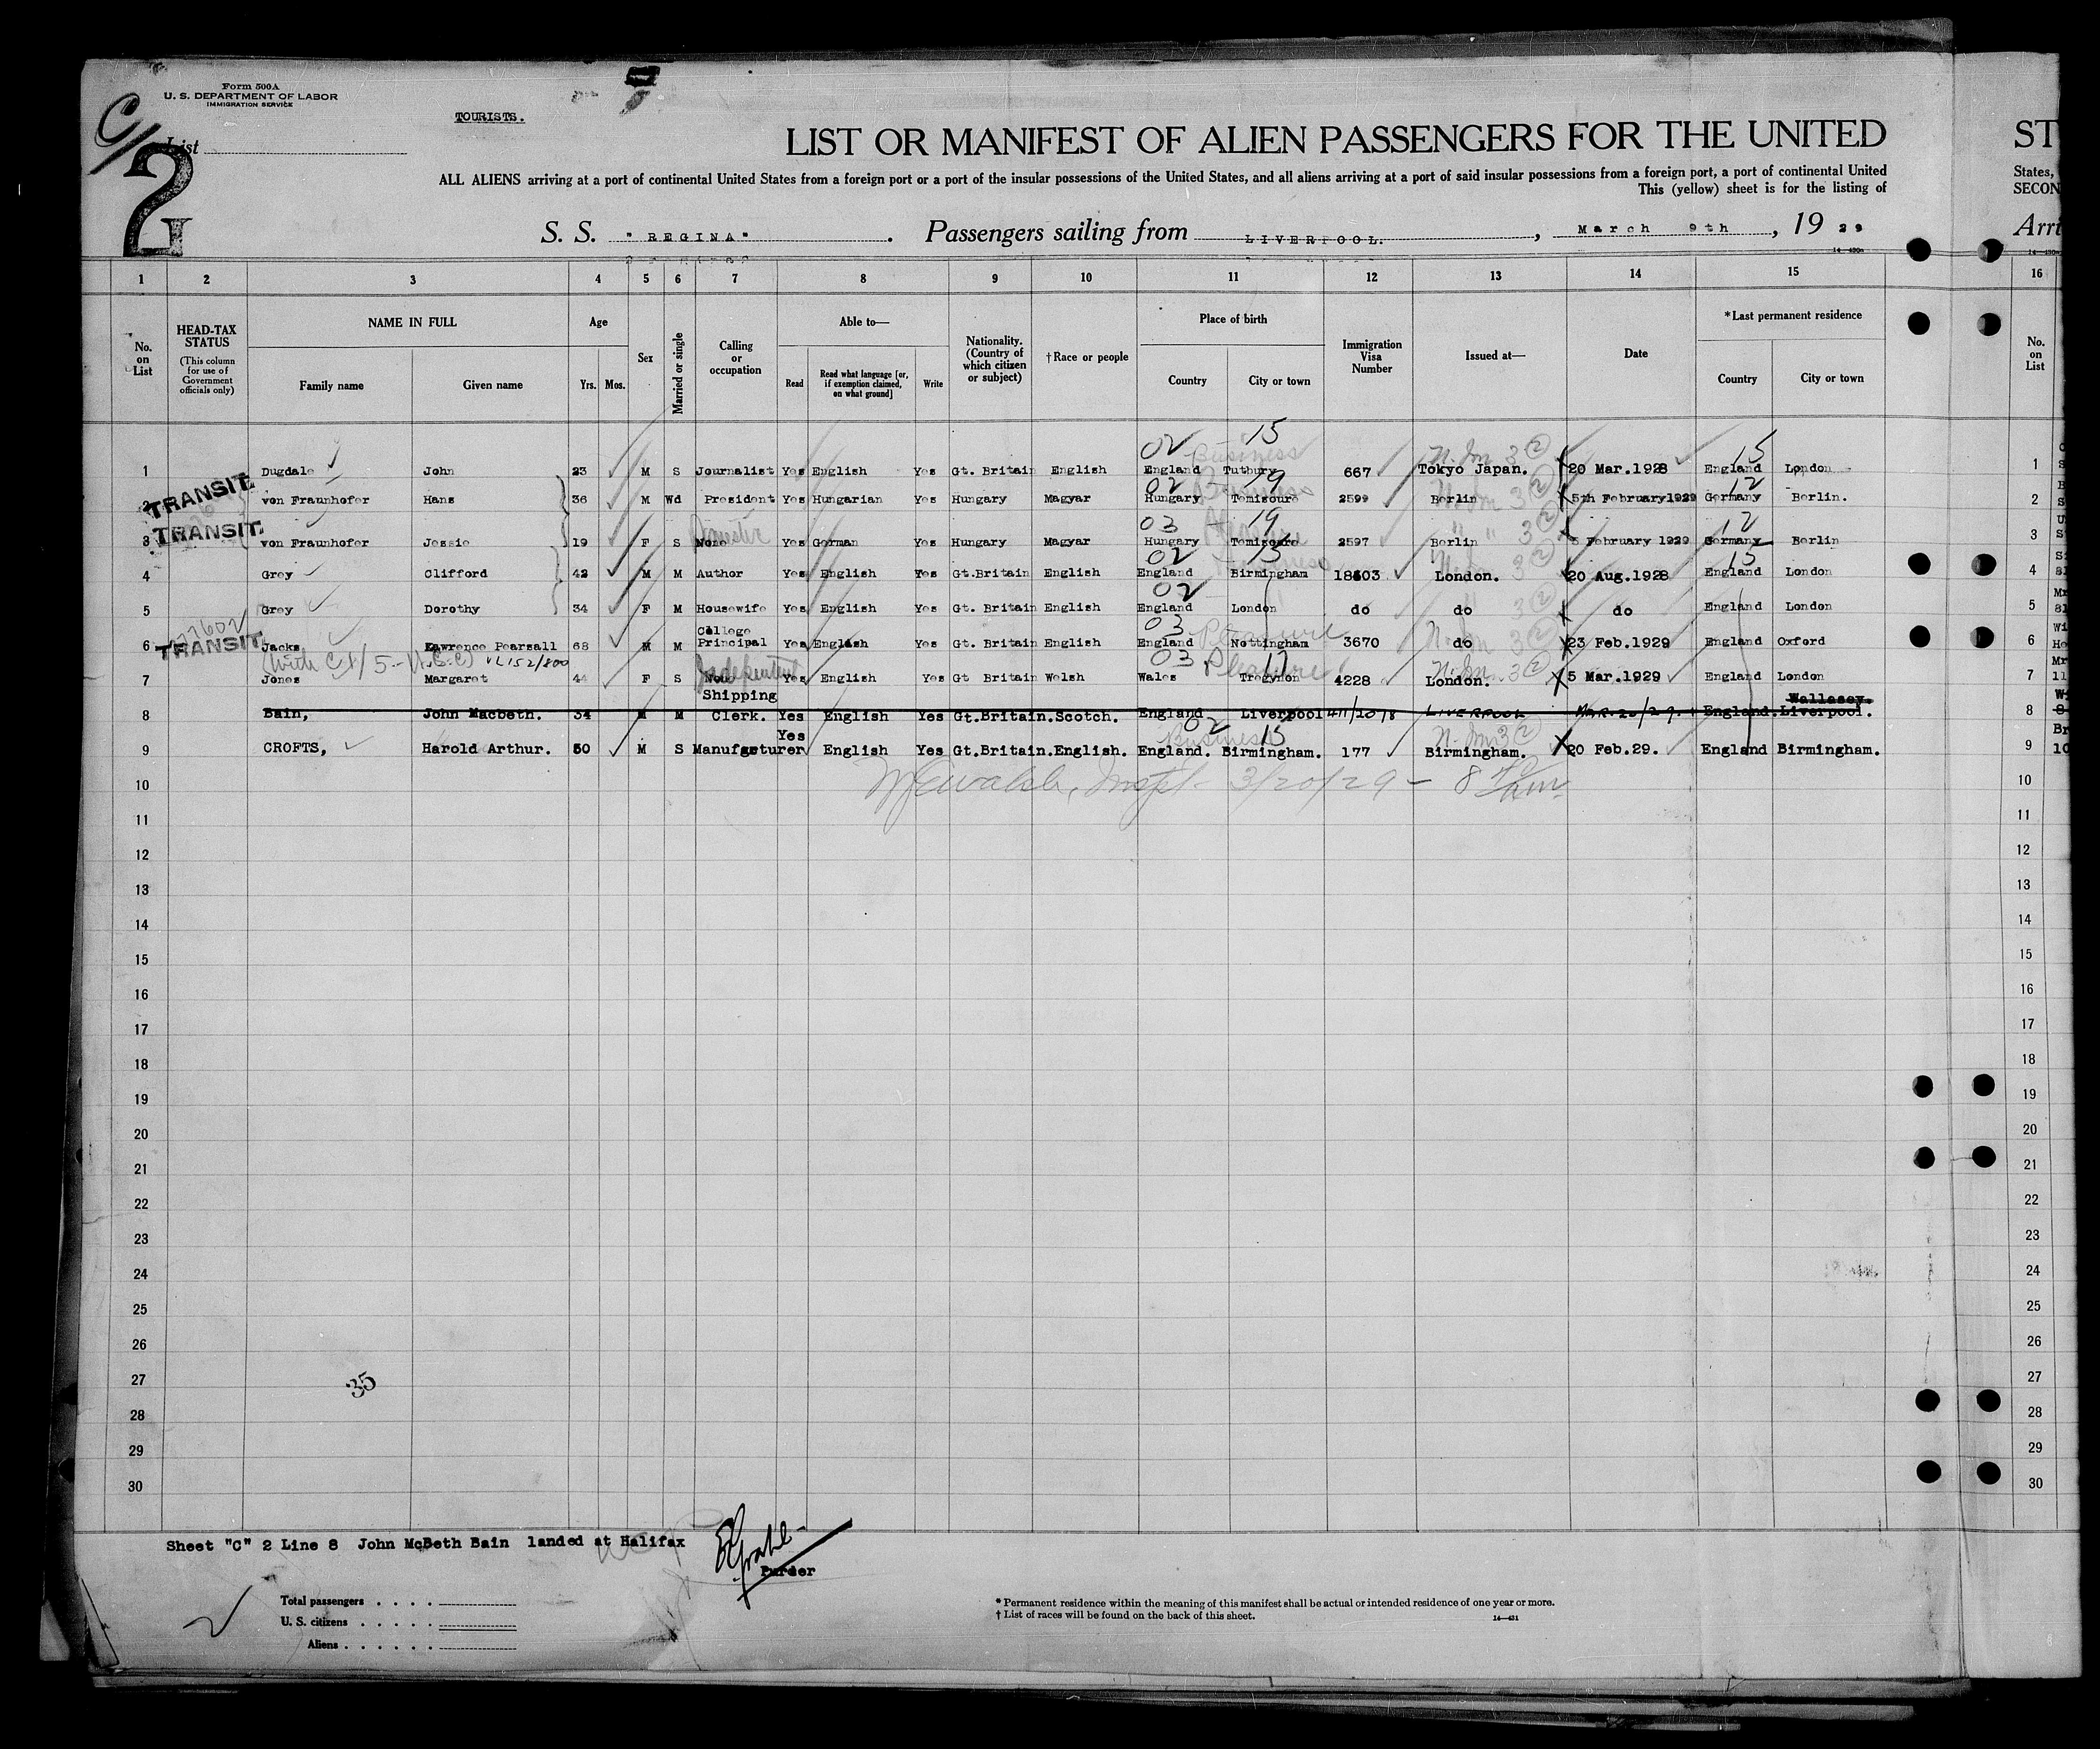 Form 500A
U. S. DEPARTMENT OF LABOR
IMMIGRATION SERVICE
C/2
List
TOURISTS.
LIST OR MANIFEST OF ALIEN PASSENGERS FOR THE UNITED
ST
ALL ALIENS arriving at a port of continental United States from a foreign port or a port of the insular possessions of the United States, and all aliens arriving at a port of said insular possessions from a foreign port, a port of continental United
States,
This (yellow) sheet is for the listing of
SECON
S. S. "REGINA". Passengers sailing from LIVERPOOL., March 9th, 19 29
Arri
1 2 3 4 5 6 7 8 9 10 11 12 13 14 15 16
No. on List
HEAD-TAX STATUS
(This column for use of Government officials only)
NAME IN FULL
Family name Given name
Age
Yrs. Mos.
Sex
Married or single
Calling or occupation
Able to—
Read Read what language [or, if exemption claimed, on what ground] Write
Nationality. (Country of which citizen or subject)
†Race or people
Place of birth
Country City or town
Immigration Visa Number
Issued at—
Date
*Last permanent residence
Country City or town
No. on List
02 15 Business 15
1 Dugdale John 23 M S Journalist Yes English Yes Gt. Britain English England Tutbury 667 Tokyo Japan. 20 Mar.1928 England London 1
TRANSIT
02 19 Business 12
2 von Fraunhofer Hans 36 M Wd President Yes Hungarian Yes Hungary Magyar Hungary 2599 Berlin 5th February1929 Germany Berlin. 2
TRANSIT
03 19 12
3 von Fraunhofer Jessie 19 F S None Yes German Yes Hungary Magyar Hungary 2597 Berlin 5 February 1929 Germany Berlin 3
02 15 Business 15
4 Grey Clifford 42 M M Author Yes English Yes Gt.Britain English England Birmingham 18603 London. 20 Aug.1928 England London 4
02
5 Grey Dorothy 34 F M Housewife Yes English Yes Gt. Britain English England London do do do England London 5
TRANSIT
03 Pleasure
6 Jacks Lawrence Pearsall 68 M M College Principal Yes English Yes Gt. Britain English England Nottingham 3670 do 23 Feb.1929 England Oxford 6
03 Pleasure 17
7 Jones Margaret 44 F S Independent Yes English Yes Gt Britain Welsh Wales Tregynon 4228 London. 5 Mar.1929 England London 7
8 Bain, John Macbeth. 34 M M Shipping Clerk. Yes English Yes Gt.Britain. Scotch. England Liverpool LIVERPOOL England. Wallasey. Liverpool. 8
02 15 Business
9 CROFTS, Harold Arthur. 50 M S Manufacturer Yes English Yes Gt.Britain. English. England. Birmingham. 177 Birmingham. 20 Feb.29. England Birmingham. 9
3/20/29 -
10 10
11 11
12 12
13 13
14 14
15 15
16 16
17 17
18 18
19 19
20 20
21 21
22 22
23 23
24 24
25 25
26 26
27 27
35
28 28
29 29
30 30
Sheet "C" 2 Line 8 John McBeth Bain landed at Halifax
Purser
Total passengers
U. S. citizens
Aliens
* Permanent residence within the meaning of this manifest shall be actual or intended residence of one year or more.
† List of races will be found on the back of this sheet.
14—431